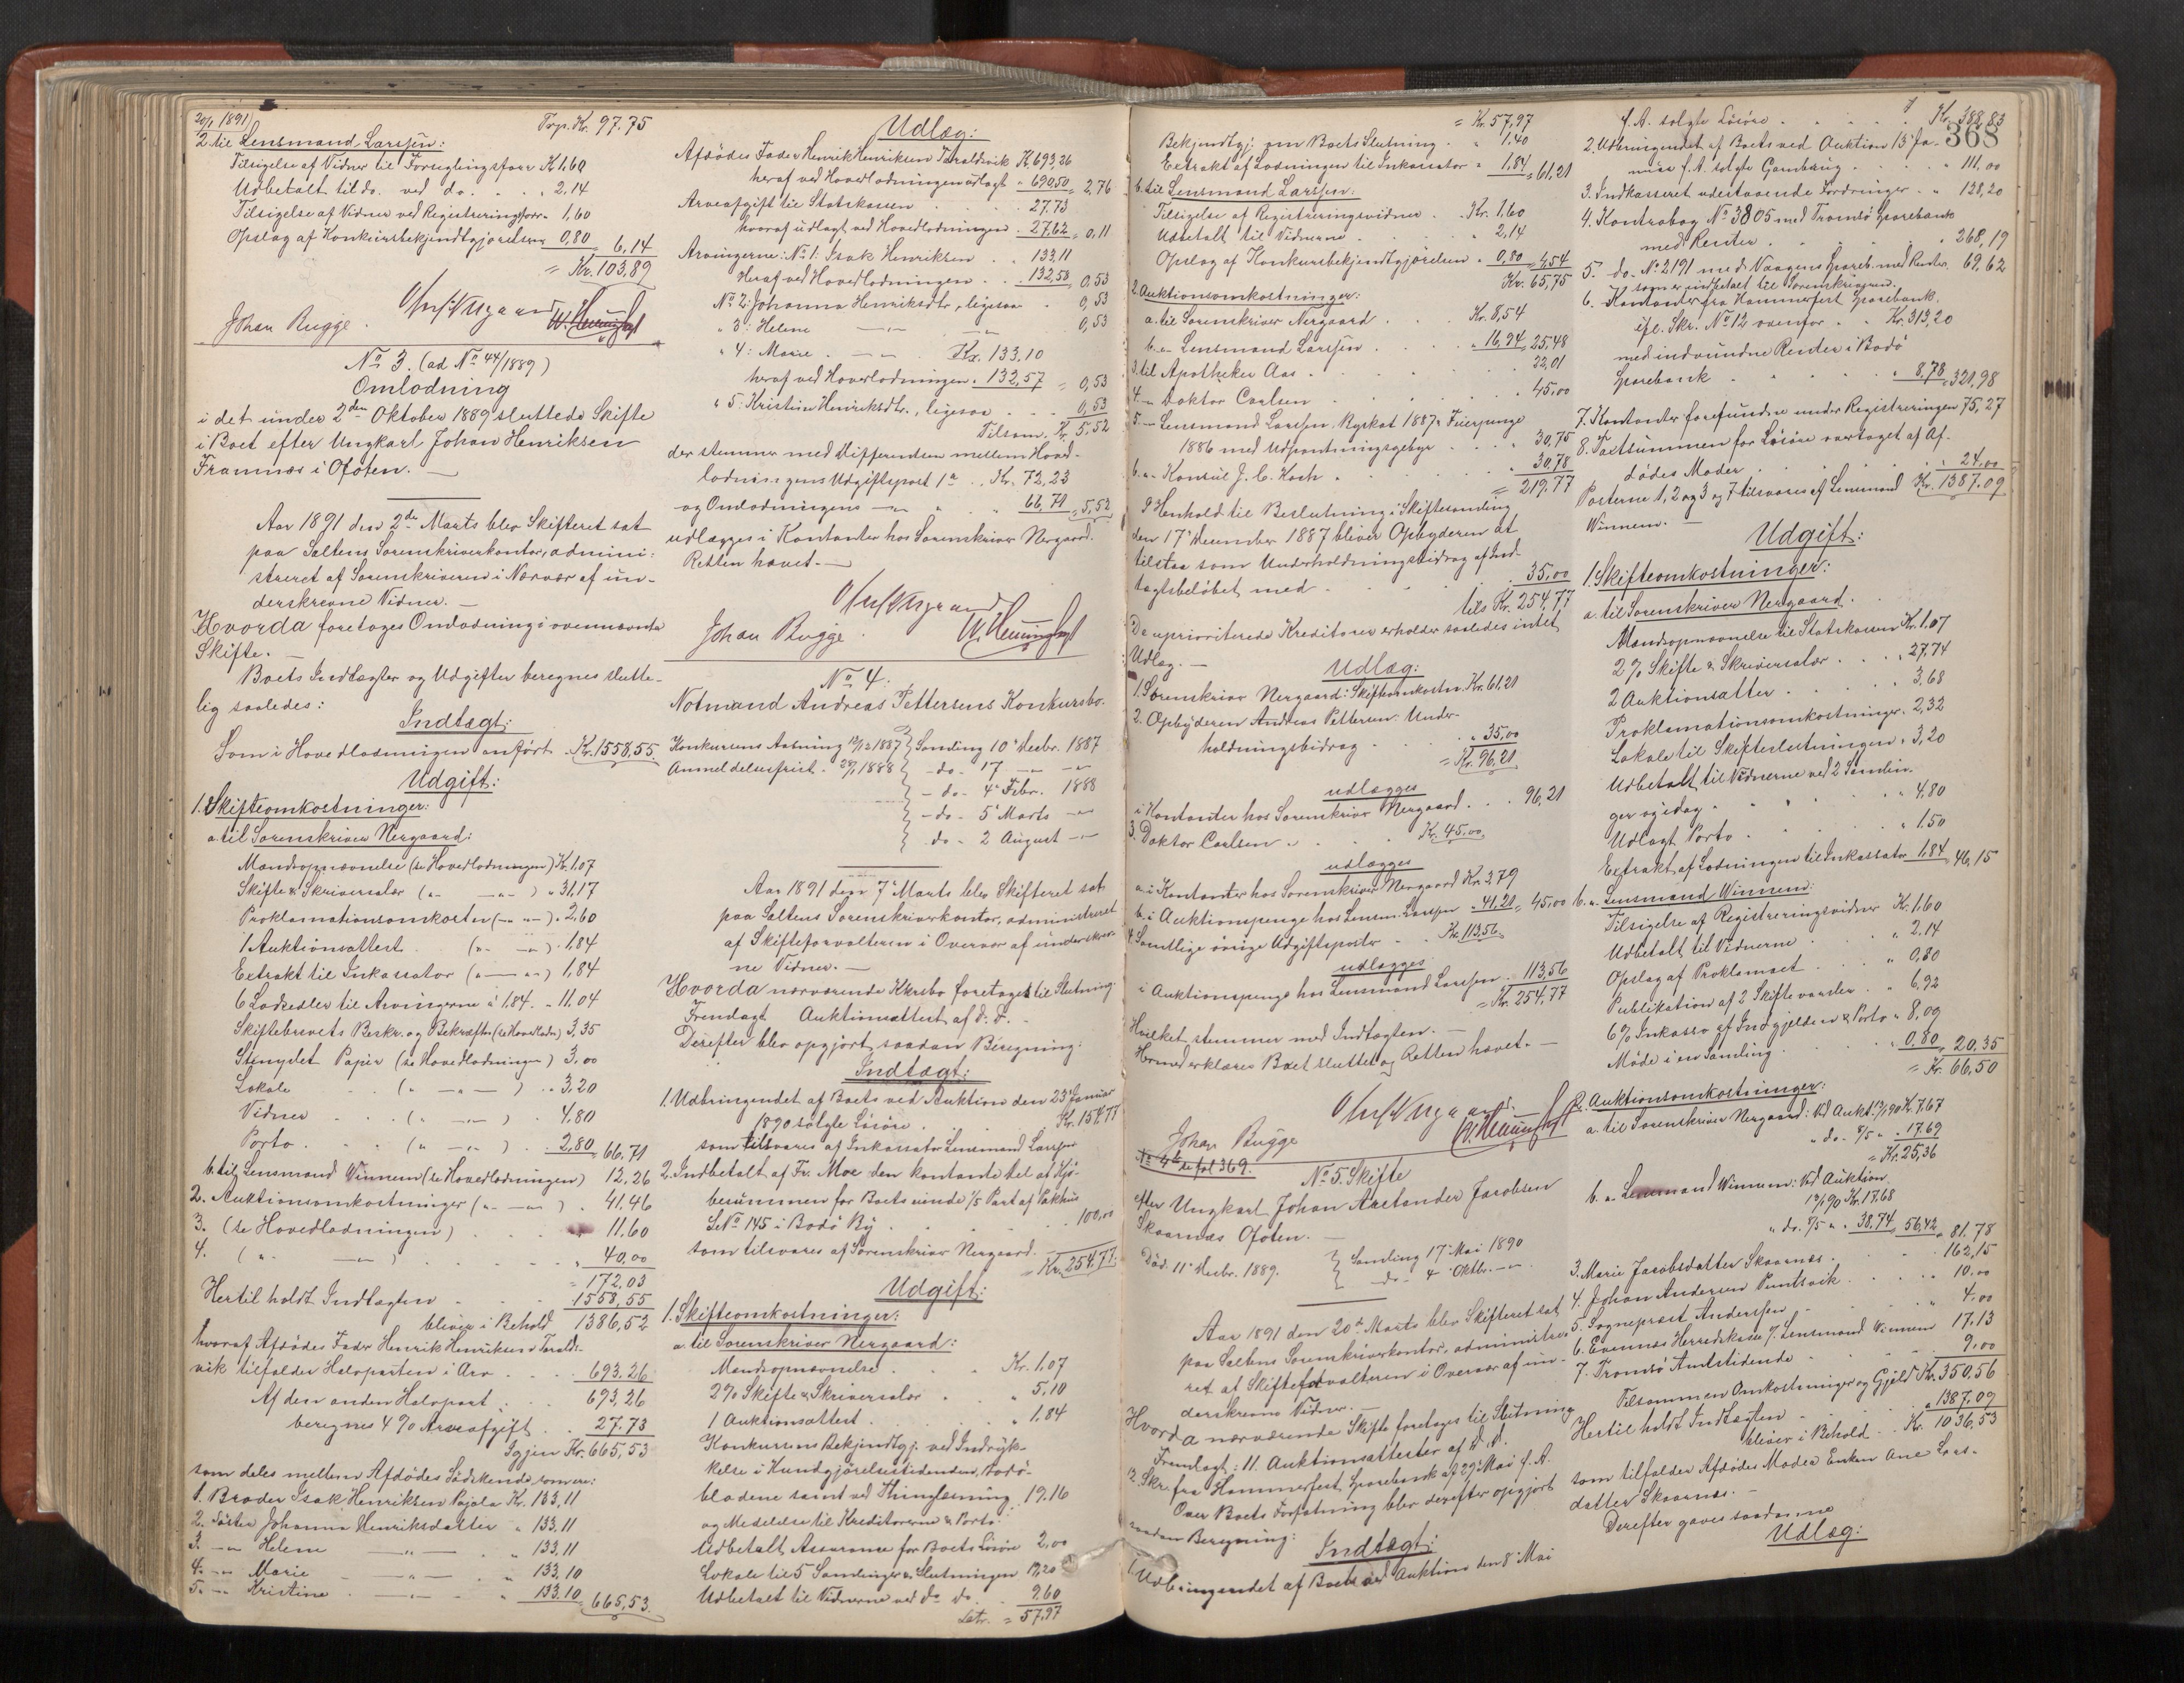 20/1 1891
Trp. Kr. 97.75
2. til Lensmand Larssen:
Tilsigelse af Vidner til Forseglingsforr. K 1,60
Udbetalt til do. ved do. . . " 2,14
Tilsigelse af Vidner ved Registreringsforr. 1,60
Opslag af Konkursbekjendtgjørelsen 0,80 = 6,14
= Kr. 103,89
Johan Bugge.
No 3. (ad No 44/1889)
Omlodning
i det under 2den Oktober 1889 sluttede Skifte
i Boet efter Ungkarl Johan Henriksen
Framnæs i Ofoten. —
Aar 1891 den 2de Marts blev Skifteret sat
paa Saltens Sorenskriverkontor, admini:
streret af Sorenskriveren i Nærvær af un-
derskrevne Vidner. —
Hvorda foretoges Omlodning i ovennævnte
Skifte. —
Boets Indtægter og Udgifter beregnes slutte-
lig saaledes:
Indtægt:
Som i Hovedlodningen anført. Kr. 1558,55.
Udgift:
1. Skifteomkostninger:
a. til Sorenskriver Nergaard:
Mandsopnævnelse (se Hovedlodningen) Kr. 1,07
Skifte & Skriversalær (" — " — ) " 31,17
Proklamationsomkostn (— " —) " 2,60
1 Auktionsattest . (" — " —) " 1,84
Extrakt til Inkassator (" — " —) 1,84
6 Lodsedler til Arvingerne à 1,84. " 11,04
Skiftebrevets Beskr. og Bekræftn (se Hovedlodn) 3,35
Stemplet Papir (se Hovedlodningen) 3,00
Lokale . . (" — " — ) . . 3,20
Vidner . . (" — " — ) . 4,80
Porto . . (" — " — ) . 2,80 = 66,71
b. til Lensmand Winnem (se Hovedlodningen) 12,26
2. Auktionsomkostninger (" — " — ) . 41,46
3. (se Hovedlodningen) . . . 11,60
4. ( " — " — ) . . . " 40,00
= 172,03
Hertil holdt Indtægten . . . 1558,55
bliver i Behold 1386,52
hvoraf Afdødes Fader Henrik Henriksen Tarald-
vik tilfalder Halvparten i Arv . . . 693,26
Af den anden Halvpart . . 693,26
beregnes 4 % Arveafgift . . 27,73
Igjen Kr. 665,53
som deles mellem Afdødes Sødskende som er:
1. Broder Isak Henriksen Pajala Kr. 133,11
2. Søster Johanna Henriksdatter " 133,11
3. — " Helene — " — " 133,11
4. — " Marie — " — " 133,10
5. — " Kristine — " — " 133,10 665,53.
Udlæg:
Afdødes Fader Henrik Henriksen Taraldsvik K 693,26
heraf ved Hovedlodningen udlagt " 690,50 = 2,76
Arveafgift til Statskassen . . . 27,73
hvoraf udlagt ved Hovedlodningen . 27,62 = 0,11
Arvingerne: No 1: Isak Henriksen . . 133,11
Heraf ved Hovedlodningen . . 132,58 0,53
No 2: Johanna Henriksdtr, ligesaa . 0,53
" 3: Helene — " — — " — 0,53
" 4: Marie . — " — Kr. 133,10
heraf ved Hovedlodningen . 132,57 = 0,53
" 5: Kristine Henriksdtr, ligesaa . . 0,53
Tilsam. Kr. 5,52
der stemmer med Differensen mellem Hoved-
lodningens Udgiftspost 1a . . Kr. 72,23
og Omlodningens — " — " " 66,71 = 5,52
udlægges i Kontanter hos Sorenskriver Nergaard.
Retten hævet. —
Johan Bugge.
No 4.
Notmand Andreas Pettersens Konkursbo.
Konkursens Aabning 12/12 1887 } Samling 10 Decbr. 1887
Anmeldelsesfrist . 28/1 1888 } — do — 17 — " — " —
} — do — 4 Febr. 1888
} — do — 5 Marts — " —
} do — 2 August — " —
Aar 1891 den 7 Marts blev Skifteret sat
paa Saltens Sorenskriverkontor, administreret
af Skifteforvalteren i Overvær af underskrev-
ne Vidner. —
Hvorda nærværende Kkrsbo foretoges til Slutning.
Fremlagt Auktionsattest af d. D. —
Derefter blev opgjort saadan Beregning:
Indtægt:
1. Udbringendet af Boets ved Auktion den 23 Januar
1890 solgte Løsøre . . . Kr. 154,77
som tilsvares af Inkassator Lensmand Larssen
2. Indbetalt af Fr. Moe den kontante Del af Kjø-
besummen for Boets eiende 1/5 Part af Pakhus
SNo 145 i Bodø By . . . . 100,00
som tilsvares af Sorenskriver Nergaard. = Kr. 254,77.
Udgift:
1. Skifteomkostninger:
a. til Sorenskriver Nergaard:
Mandsopnævnelse . . . Kr. 1,07
2 % Skifte & Skriversalær . . " 5,10
1 Auktionsattest . . . . " 1,84
Konkursens Bekjendtgj. ved Indryk-
kelse i Kundgjørelsestidenden, Bodø-
bladene samt ved Thinglæsning
og Meddelelse til Kreditorerne & Porto. 19,16
Udbetalt Assurance for Boets Løsøre 2,00
Lokale til 5 Samlinger & Slutningen 19,20
Udbetalt til Vidnerne ved do do . 9,60
Latr. = 57,97
= Kr. 57,97
Bekjendtgj. om Boets Slutning . . " 1,40
Extrakt af Lodningen til Inkassator " 1,84 = 61,21
b. til Lensmand Larssen:
Tilsigelse af Registreringsvidner . . Kr. 1,60
Udbetalt til Vidnerne . . . " 2,14
Opslag af Konkursbekjendtgjørelsen " 0,80 = 4,54
Kr. 65,75
2. Auktionsomkostninger:
a. til Sorenskriver Nergaard . . Kr. 8,54
b. " Lensmand Larssen . . . " 16,94 = 25,48
3. til Apotheker Aas . . . . . 22,01
4. — " Doktor Carlsen . . . . " 45,00
5. — " Lensmand Larssen Byskat 1887 & Feierpenge
1886 med Udpantningsgebyr . . . 30,75
6. " — Konsul J. C. Koch . . . " 30,78
= 219,77
I Henhold til Beslutning i Skiftesamling
den 17 December 1887 bliver Opbyderen at
tilstaa som Underholdningsbidrag af Ind-
tægtsbeløbet med . . . . 35,00
tils Kr. 254,77
De uprioriterede Kreditorer erholder saaledes intet
Udlæg. —
Udlæg:
1. Sorenskriver Nergaard: Skifteomkostn. Kr. 61,21
2. Opbyderen Andreas Pettersen: Under-
holdningsbidrag . . . . " 35,00
= Kr. 96,21
udlægges
i Kontanter hos Sorenskriver Nergaard . . . 96,21
3. Doktor Carlsen . . . Kr. 45,00.
udlægges
a. i Kontanter hos Sorenskriver Nergaard Kr. 3,79
b. i Auktionspenge hos Lensm. Larssen " 41,21 = 45,00
4. Samtlige øvrige Udgiftsposter . . Kr. 113,56
udlægges
i Auktionspenge hos Lensmand Larssen . 113,56
= Kr. 254,77
Hvilket stemmer med Indtægten. —
Hermed erklæres Boet sluttet og Retten hævet. —
Johan Bugge
No 4b se fol 369.
No 5. Skifte
efter Ungkarl Johan Axelander Jacobsen
Skaarnæs Ofoten. —
Død. 11 Decbr. 1889. } Samling 17 Mai 1890
} do — 4 Oktbr. — " —
Aar 1891 den 20de Marts blev Skifteret sat
paa Saltens Sorenskriverkontor, administre-
ret af Skifteforvalteren i Overvær af un-
derskrevne Vidner. —
Hvorda nærværende Skifte foretoges til Slutning
Fremlagt: 11. Auktionsattester af d. D.
12. Skr. fra Hammerfest Sparebank af 29 Mai f. A.
Over Boets Forfatning blev derefter opgjort
saadan Beregning:
Indtægt:
1. Udbringendet af Boets ved Auktion den 8 Mai
368
f. A. solgte Løsøre . . . . Kr. 388,83
2. Udbringendet af Boets ved Auktion 13 Ja-
nuar f. A. solgte Gambring . . . 111,00
3. Indkasseret udestaaende Fordringer . . " 128,20
4. Kontrabog No 3805 med Tromsø Sparebank
med Renter . . . . " 268,19
5. do. No 2191 med Vaagens Spareb. med Renter. 69,62
som er indbetalt til Sorenskriveren.
6. Kontanter fra Hammerfest Sparebank.
ifl. Skr. No 12 ovenfor . . Kr. 313,20
med indvundne Renter i Bodø
Sparebank . . . . " 8,78 = 321,98
7. Kontanter forefundne under Registreringen 75,27
8. Taxtsummen for Løsøre overtaget af Af-
dødes Moder . . . . " 24,00
Posterne 1, 2 og 3 og 7 tilsvares af Lensmand Kr. 1387,09
Winnem. —
Udgift:
1. Skifteomkostninger:
a. til Sorenskriver Nergaard.
Mandsopnævnelse til Statskassen Kr. 1,07
2 % Skifte & Skriversalær . . . " 27,74
2 Auktionsatter . . . " 3,68
Proklamationsomkostninger . 2,32
Lokale til Skifteslutningen " 3,20
Udbetalt til Vidnerne ved 2 Samlin-
ger og idag . . . . " 4,80
Udlagt Porto . . . . " 1,50
Extrakt af Lodningen til Inkassator 1,84 46,15
b. " Lensmand Winnem:
Tilsigelse af Registreringsvidner Kr. 1,60
Udbetalt til Vidnerne . . " 2,14
Opslag af Proklamaet . . . " 0,80
Publikation af 2 Skiftevarsler . " 6,92
6 % Inkasso af Indgjelden & Porto " 8,09
Møde i en Samling . . . " 0,80 = 20,35
= Kr. 66,50
2. Auktionsomkostninger:
a. til Sorenskriver Nergaard: Ved Aukt. 13/1 90 Kr. 7,67
" do. 8/5 " . 17,69
= Kr. 25,36
b. " Lensmand Winnem: Ved Auktion
13/1 90 Kr. 17,68
" do. 8/5 " " 38,74 = 56,42 = 81,78
3. Marie Jacobsdatter Skaarnæs . . . 162,15
4. Johan Andersen Puntsvik . . . . 10,00
5. Sogneprest Anderssen . . . " 4,00
6. Evennæs Herredskasse v/ Lensmand Winnem 17,13
7. Tromsø Amtstidende . . . . 9,00
Tilsammen Omkostninger og Gjæld Kr. 350,56
Hertil holdt Indtægten . . . " 1387,09
bliver i Behold . . Kr. 1036,53
som tilfalder Afdødes Moder Enken Ane Lars-
datter Skaarnæs. —
Derefter gaves saadanne
Udlæg: